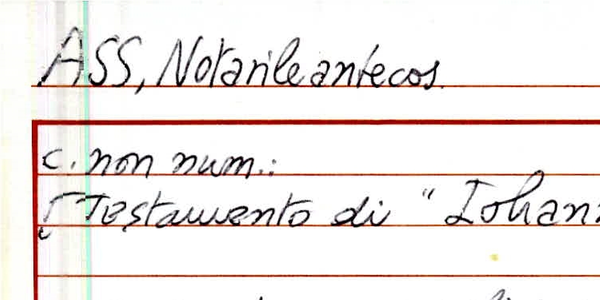 ASS, Notarile antecos.
c. non num.:
[Testamento di "Iohan